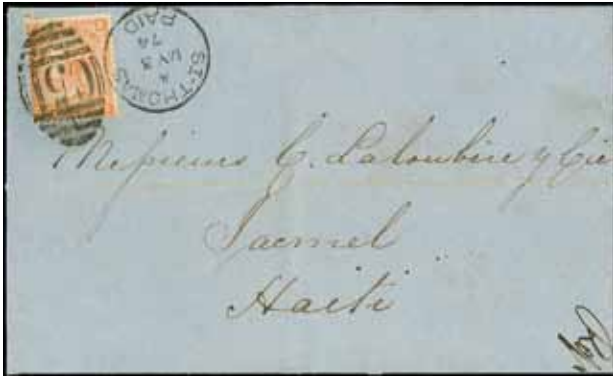 ST·THOMAS
A
JY 3
74
PAID
C51
Messieurs C. Laloubère y Cie
Jacmel
Haiti